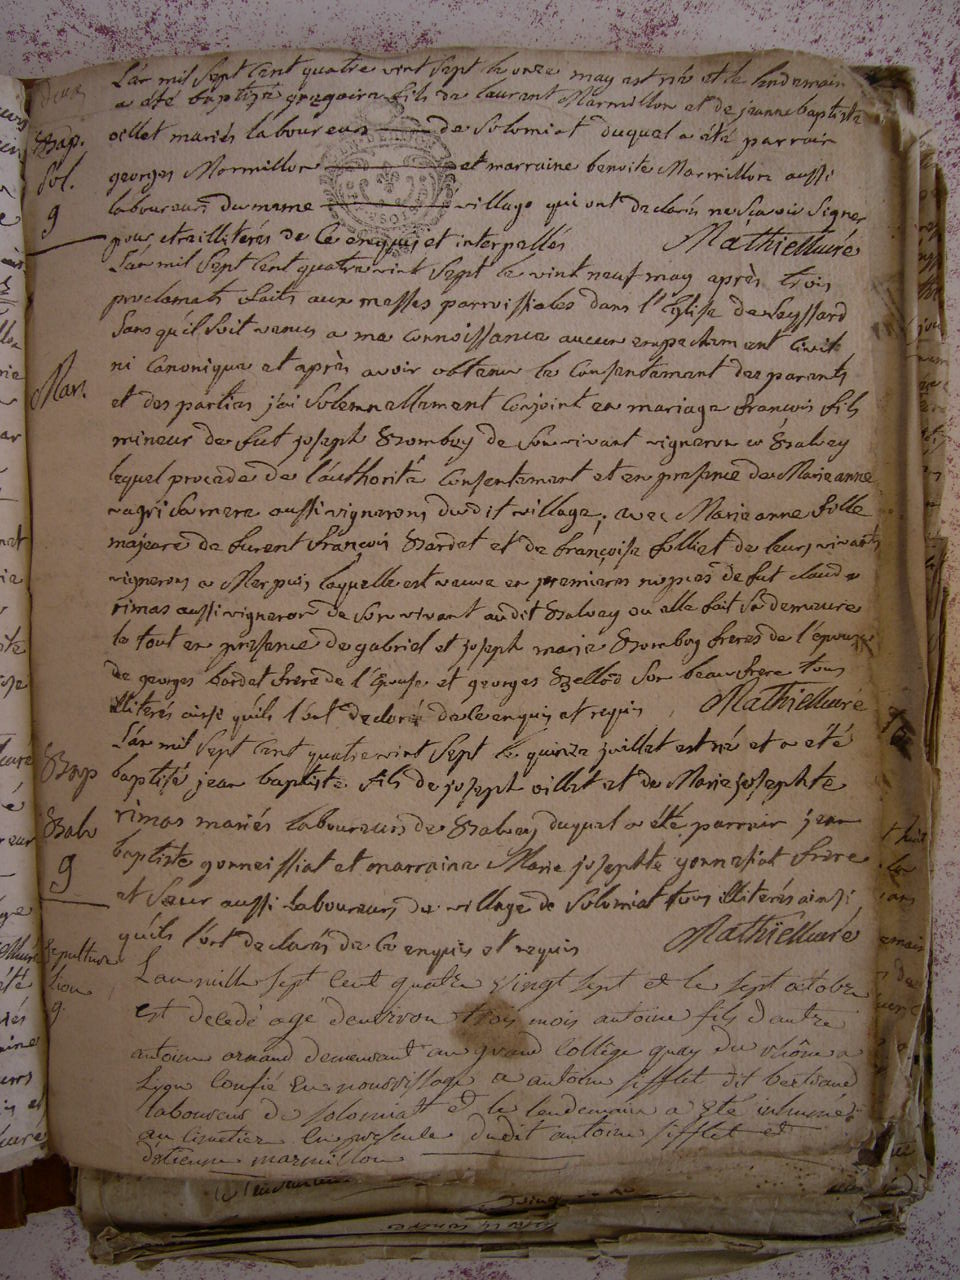 deux
L'an mil sept cent quatre vint sept le onze may est né et le lendemain
a été baptizé gregoire fils de laurent Marmillon et de jeanne baptiste
Bap. oillet mariés laboureurs de Solomiat duquel a été parrain
Sol. georges Marmillon et marraine benoite Marmillon aussi
9 laboureurs du meme village qui ont declarés ne scavoir signer
pour etre illiterés de ce enquis et interpellés Mathieu curé
L'an mil sept cent quatre vint sept le vint neuf may après trois
proclamats faits aux messes parroissiales dans l'Eglise de Leyssard
Sans qu'il soit venus a ma connoissance aucun empechement civil
Mar. ni canonique et après avoir obtenu le consentement des parents
et des parties j'ai solemnellement conjoint en mariage françois fils
mineur de fut joseph Bomboy de son vivant vigneron a Balvay
lequel procede de l'authorité consentement et en presence de Marie anne
sa mere aussi vignerons dudit village, avec Marie anne fille
majeure de furent françois Bardet et de françoise folliet de leurs vivants
vignerons a Merpuis laquelle est veuve en premieres nopces de fut claude
rimas aussi vigneron de son vivant audit Balvay ou elle fait sa demeure
le tout en presence de gabriel et joseph marie Bomboy freres de l'epoux
de georges bardet frere de l'Epouse et georges son beau frere tous
illiterés ainsi qu'ils l'ont declaré de ce enquis et requis Mathieu curé
L'an mil sept cent quatre vint sept le quinze juillet est né et a été
Bap baptisé jean baptiste fils de joseph oillet et de Marie josephte
Balv rimas mariés laboureurs de Balvay duquel a été parrain jean
9 baptiste gonnessiat et marraine Marie josephte gonnessiat frere
et soeur aussi laboureurs du village de Solomiat tous illiterés ainsi
qu'ils l'ont declarés de ce enquis et requis Mathieu curé
Sepulture L'an mille sept cent quatre vingt sept et le sept octobre
est decedé agé d'environ trois mois antoine fils d'autre
9. antoine armand demeurant au grand collège quay du rhône a
Lyon confié en nourrissage a antoine sifflet dit bertrand
laboureur de solomiat et le lendemain a été inhumé
au cimetier en presence dudit antoine sifflet et
d'etienne marmillon